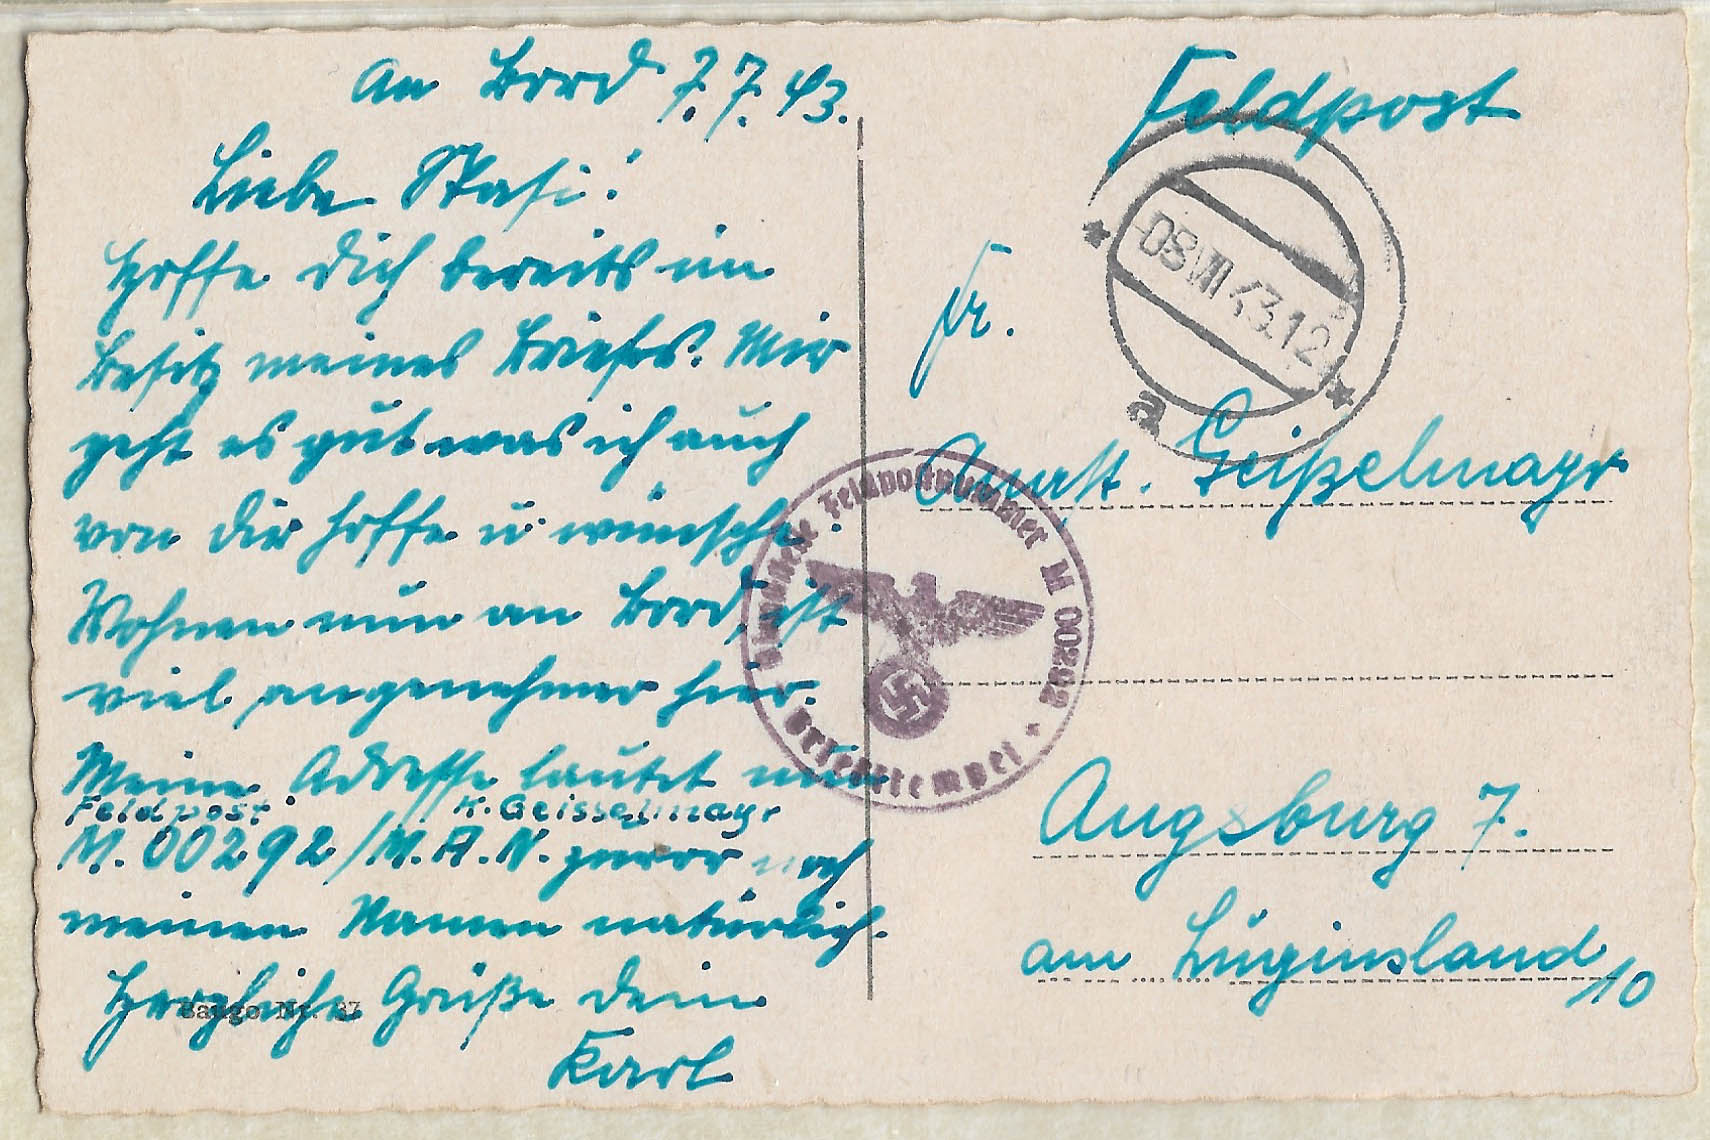 An Bord 7.7.43.
Liebe Stasi!
Hoffe Dich bereits im
Besitz meines Briefes. Mir
geht es gut was ich auch
von Dir hoffe u. wünsche.
Wohnen nun an Bord, ist
viel angenehmer hier.
Meine Adresse lautet nun
Feldpost K. Geisselmayr
M. 00292/M.A.N. zuvor noch
meinen Namen natürlich.
Herzliche Grüße Dein
Karl
Bango Nr. 37
Feldpost
Fr.
08.VII.43.12
a
Anast. Geißelmayr
Feldpostnummer M 00292
Briefstempel
Augsburg 7.
am Luginsland
10